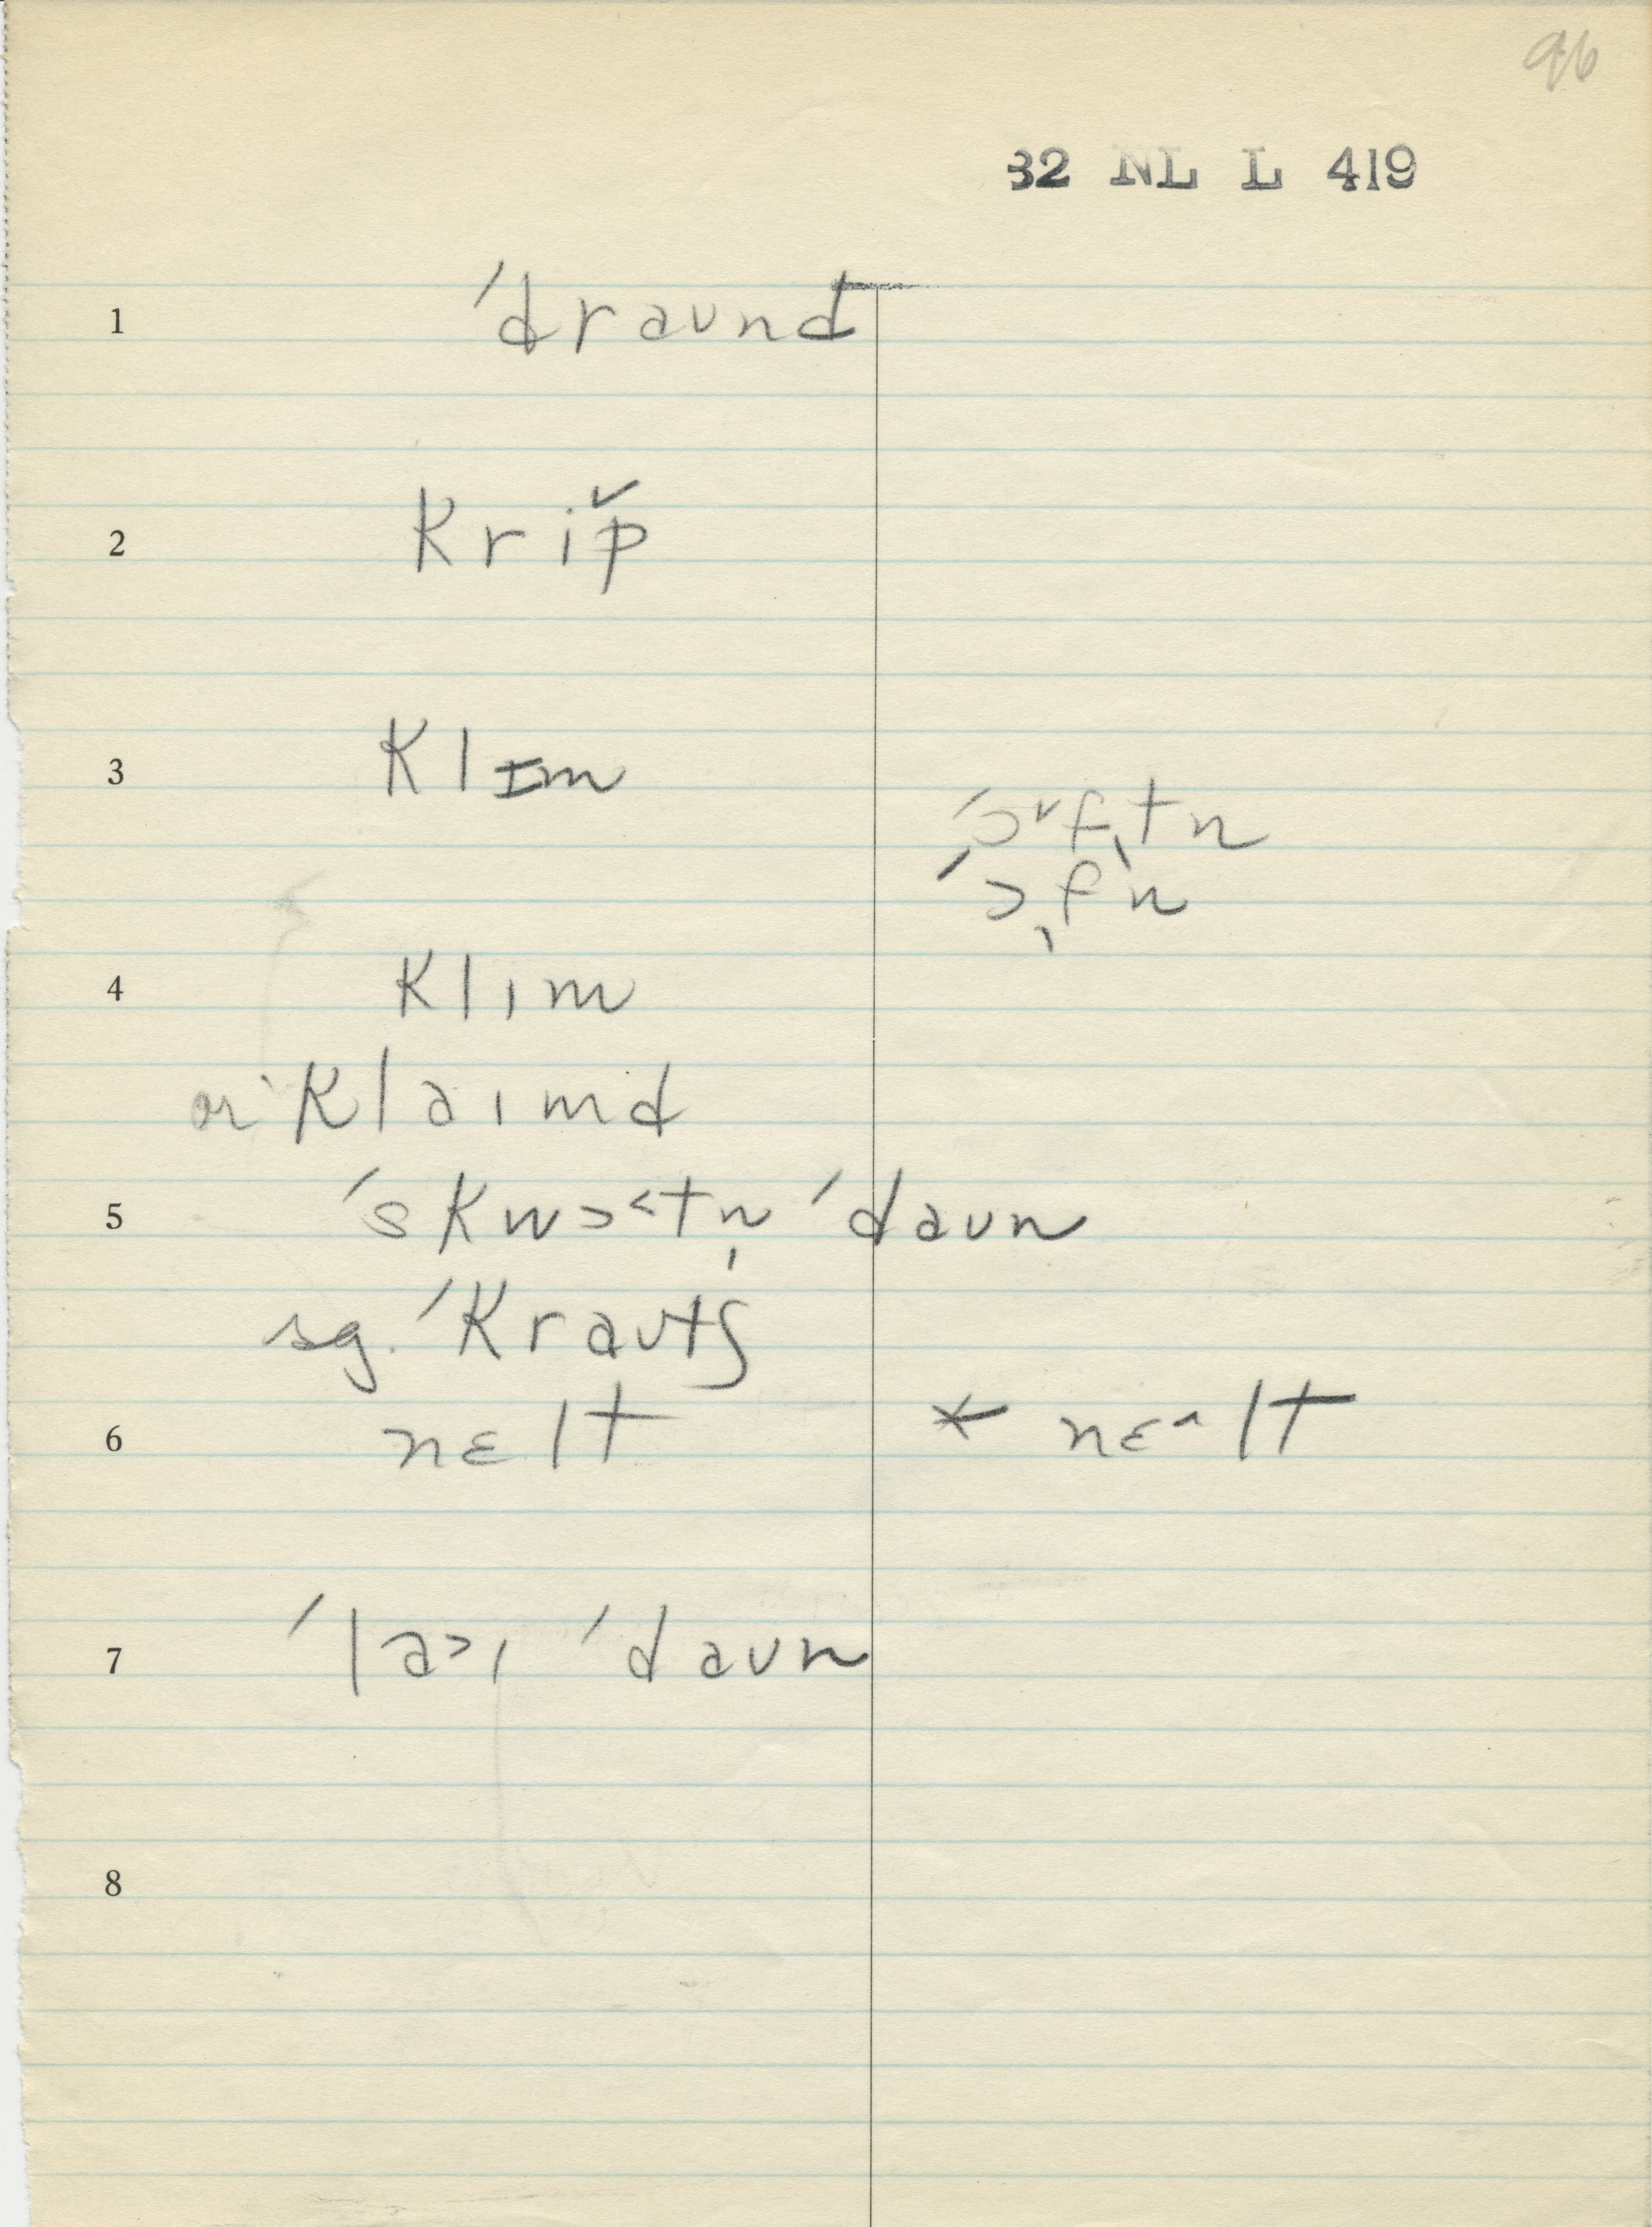 96
32 NL L 419
1 ˈdraʊnd
2 krip̌
3 klɪm
ˈɔ˅fˌtn
ˈɔˌfn
4 klɪm
or klaɪmd
5 ˈskwɔ˂tn̩ ˈdaʊn
sg. ˈkraʊtʃ
6 nɛlt * nɛ˄lt
7 ˈla˃ɪ ˈdaʊn
8